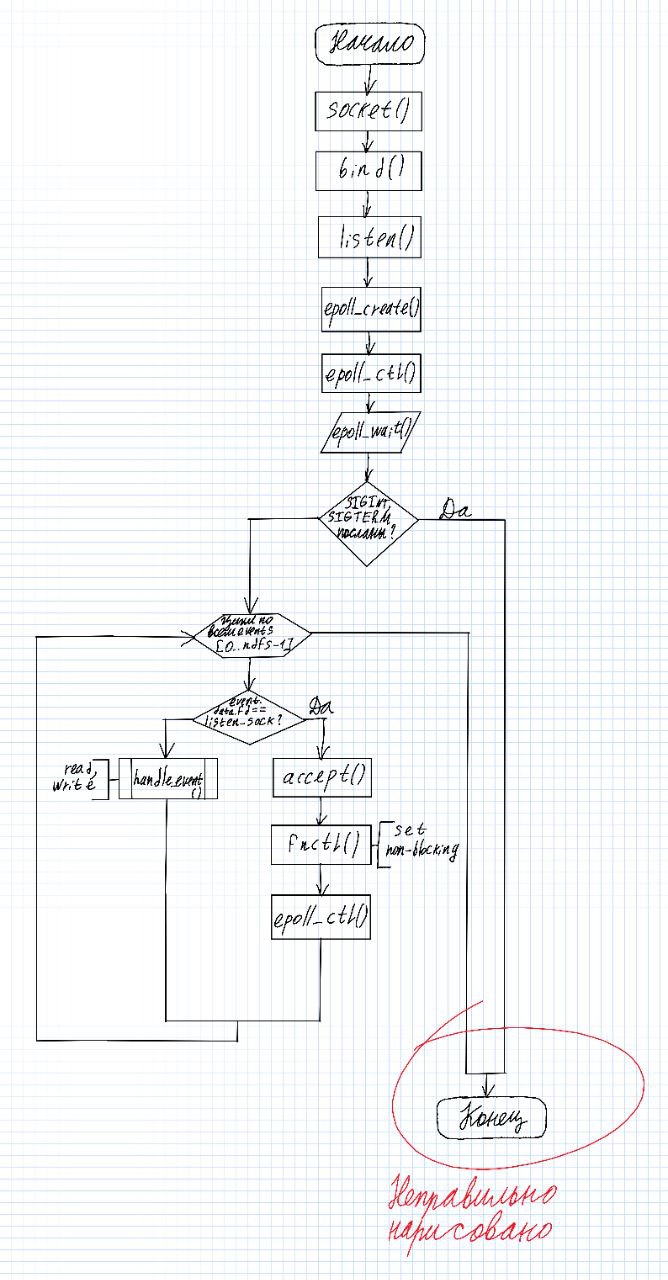 Начало
socket()
bind()
listen()
epoll_create()
epoll_ctl()
epoll_wait()
SIGINT,
SIGTERM
посланы?
Да
Цикл по
всем events
[0..ndfs-1]
event.
data.fd==
listen-sock?
Да
read,
write
handle_event
()
accept()
fnctl()
set
non-blocking
epoll_ctl()
Конец
Неправильно
нарисовано